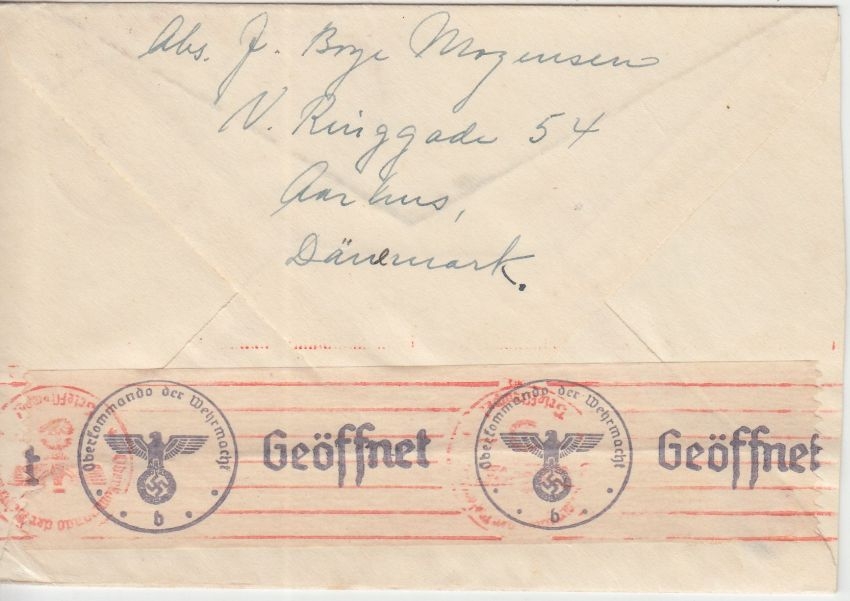 Abs. J. Boye Mogensen
N. Ringgade 54
Aarhus,
Dänemark.
t
Oberkommando der Wehrmacht
b
Geöffnet
Oberkommando der Wehrmacht
b
Geöffnet